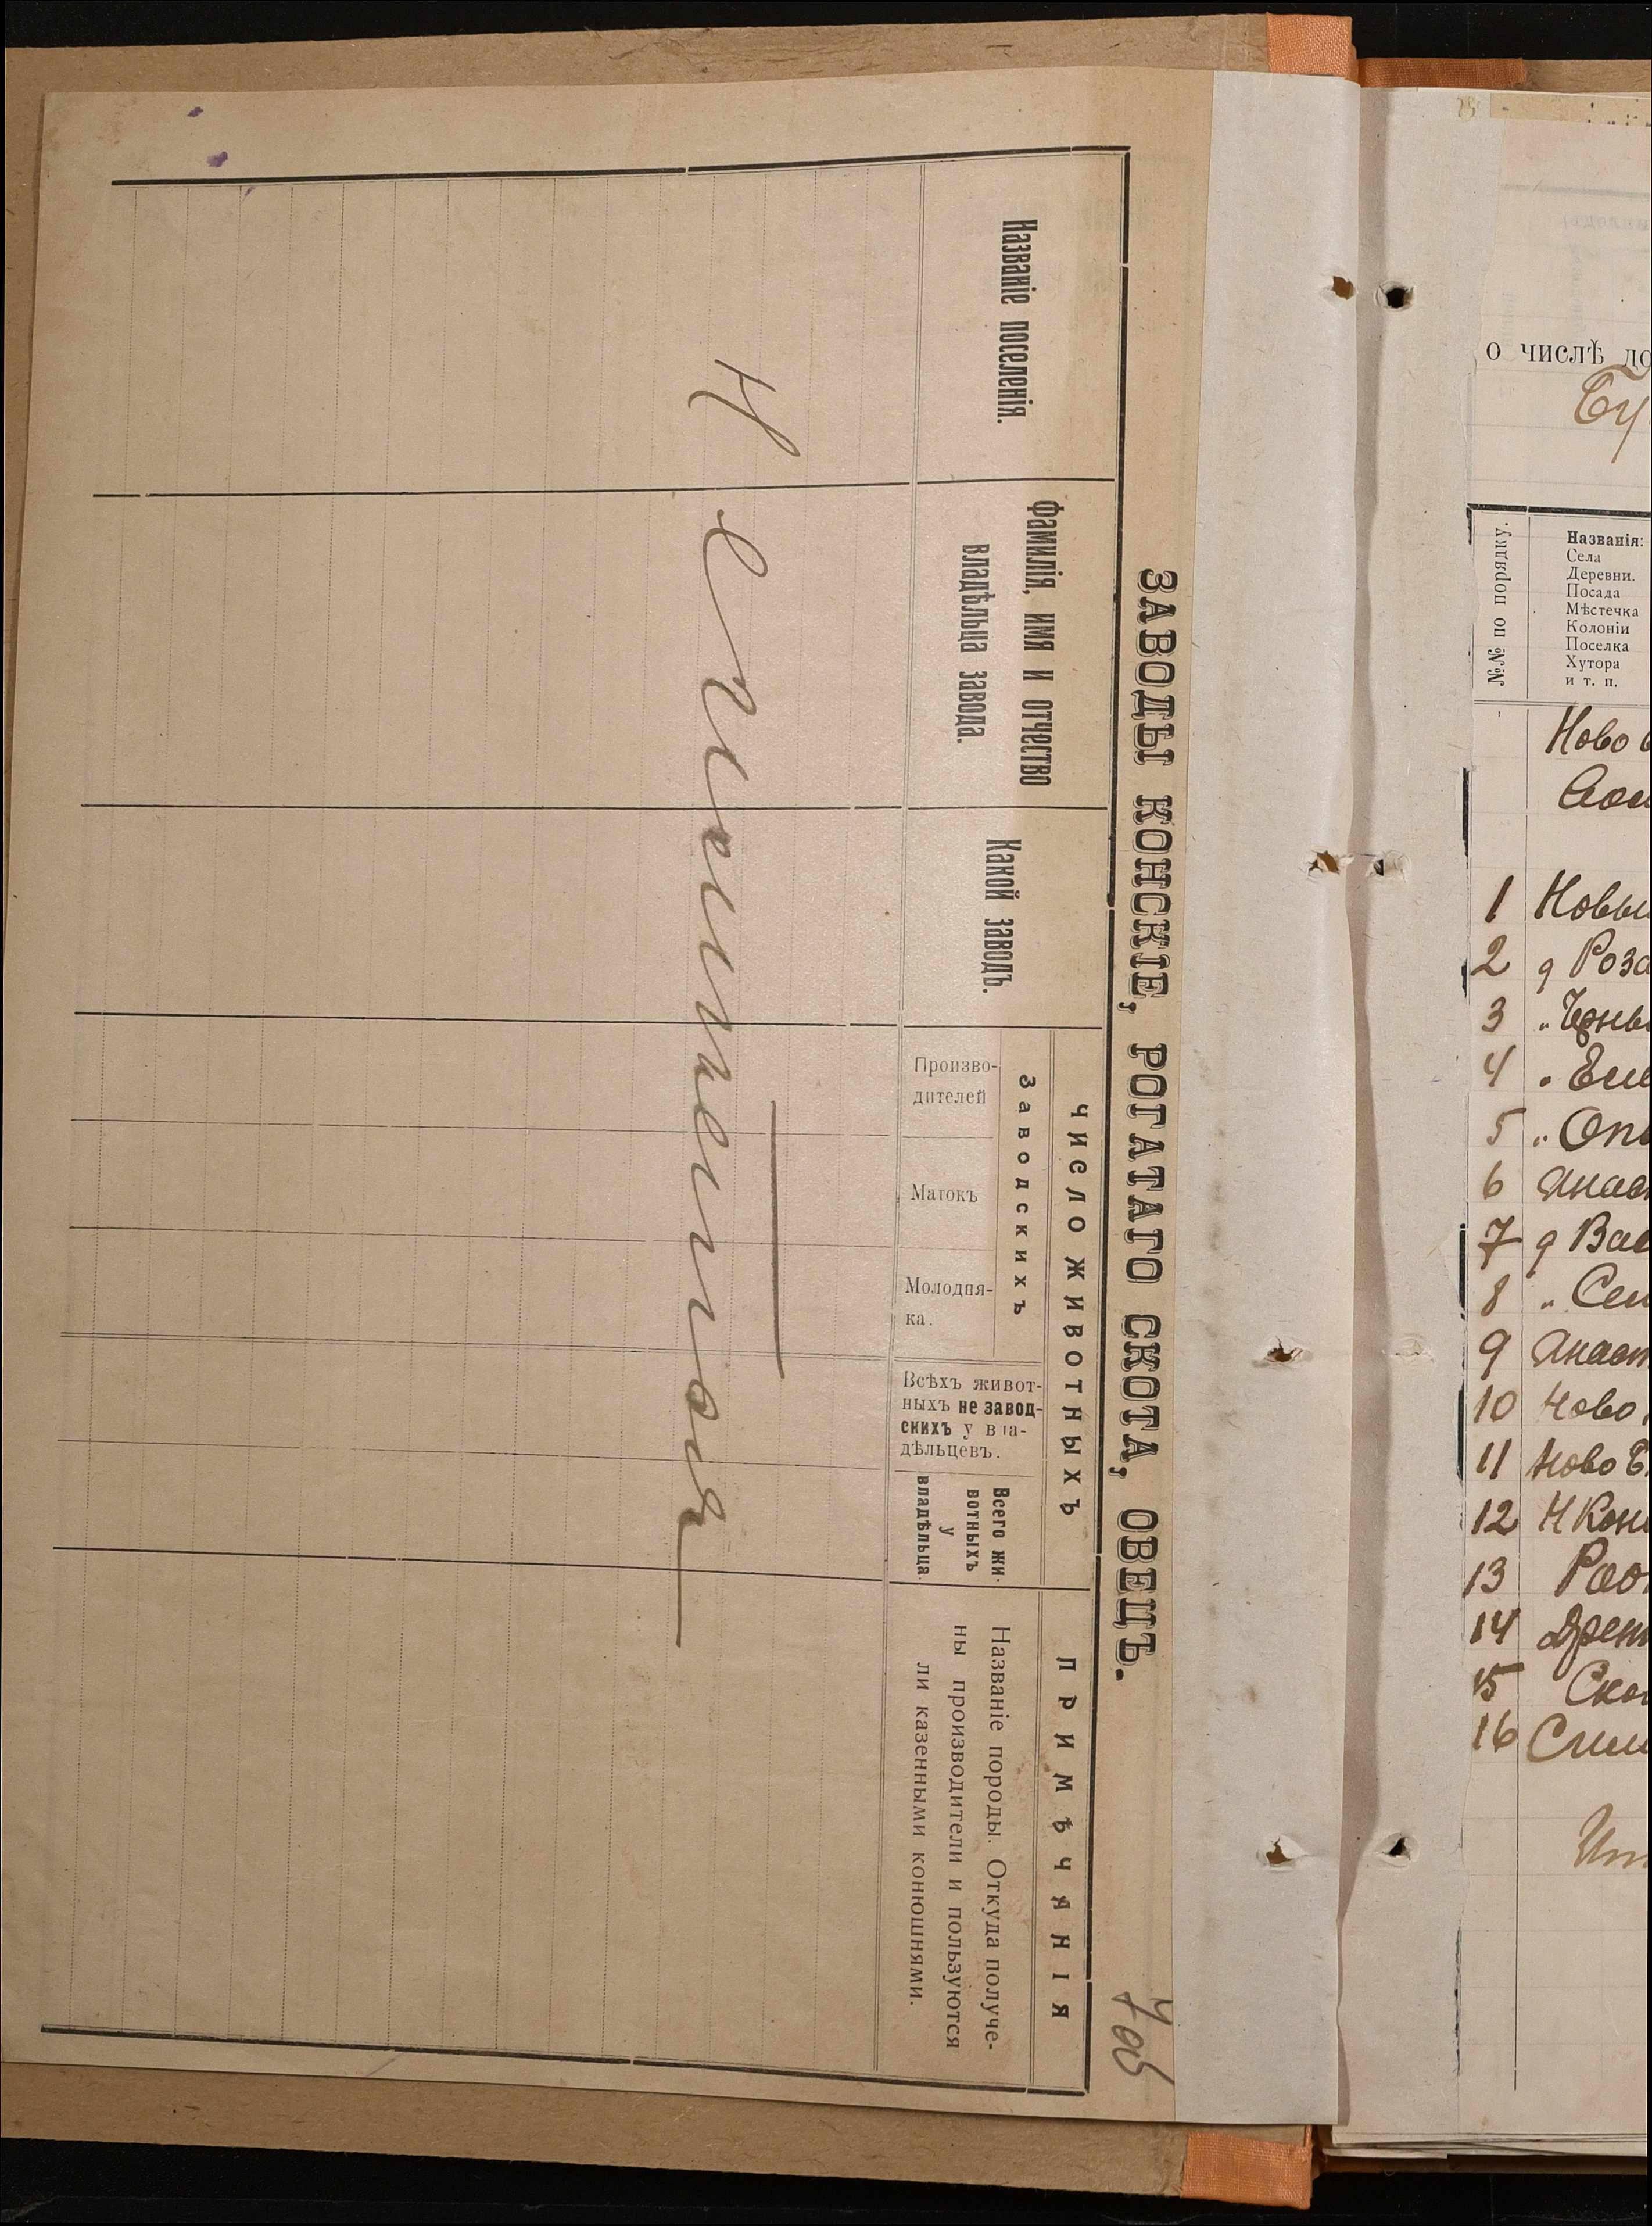 ЗАВОДЫ КОНСКІЕ, РОГАТАГО СКОТА, ОВЕЦЪ.
Названіе поселенія.
Фамилія, имя и отчество
владѣльца завода.
Какой заводъ.
ЧИСЛО ЖИВОТНЫХЪ
Заводскихъ
Произво-
дителей
Матокъ
Молодня-
ка.
Всѣхъ живот-
ныхъ не завод-
скихъ у вла-
дѣльцевъ.
Всего жи-
вотныхъ
у
владѣльца.
ПРИМѢЧАНІЯ
Названіе породы. Откуда получе-
ны производители и пользуются
ли казенными конюшнями.
Не имеется
о числѣ до
Бу
№№ по порядку.
Названія:
Села
Деревни.
Посада
Мѣстечка
Колоніи
Поселка
Хутора
и т. п.
Ново
1 Новы
2 д Роза
3 „
4 „
5 „ Оп
6 Анас
7 д Вас
8 „ Сем
9 Анаст
10 Ново
11 Ново Б
12 Н Кон
13
14
15 Ско
16
Ит